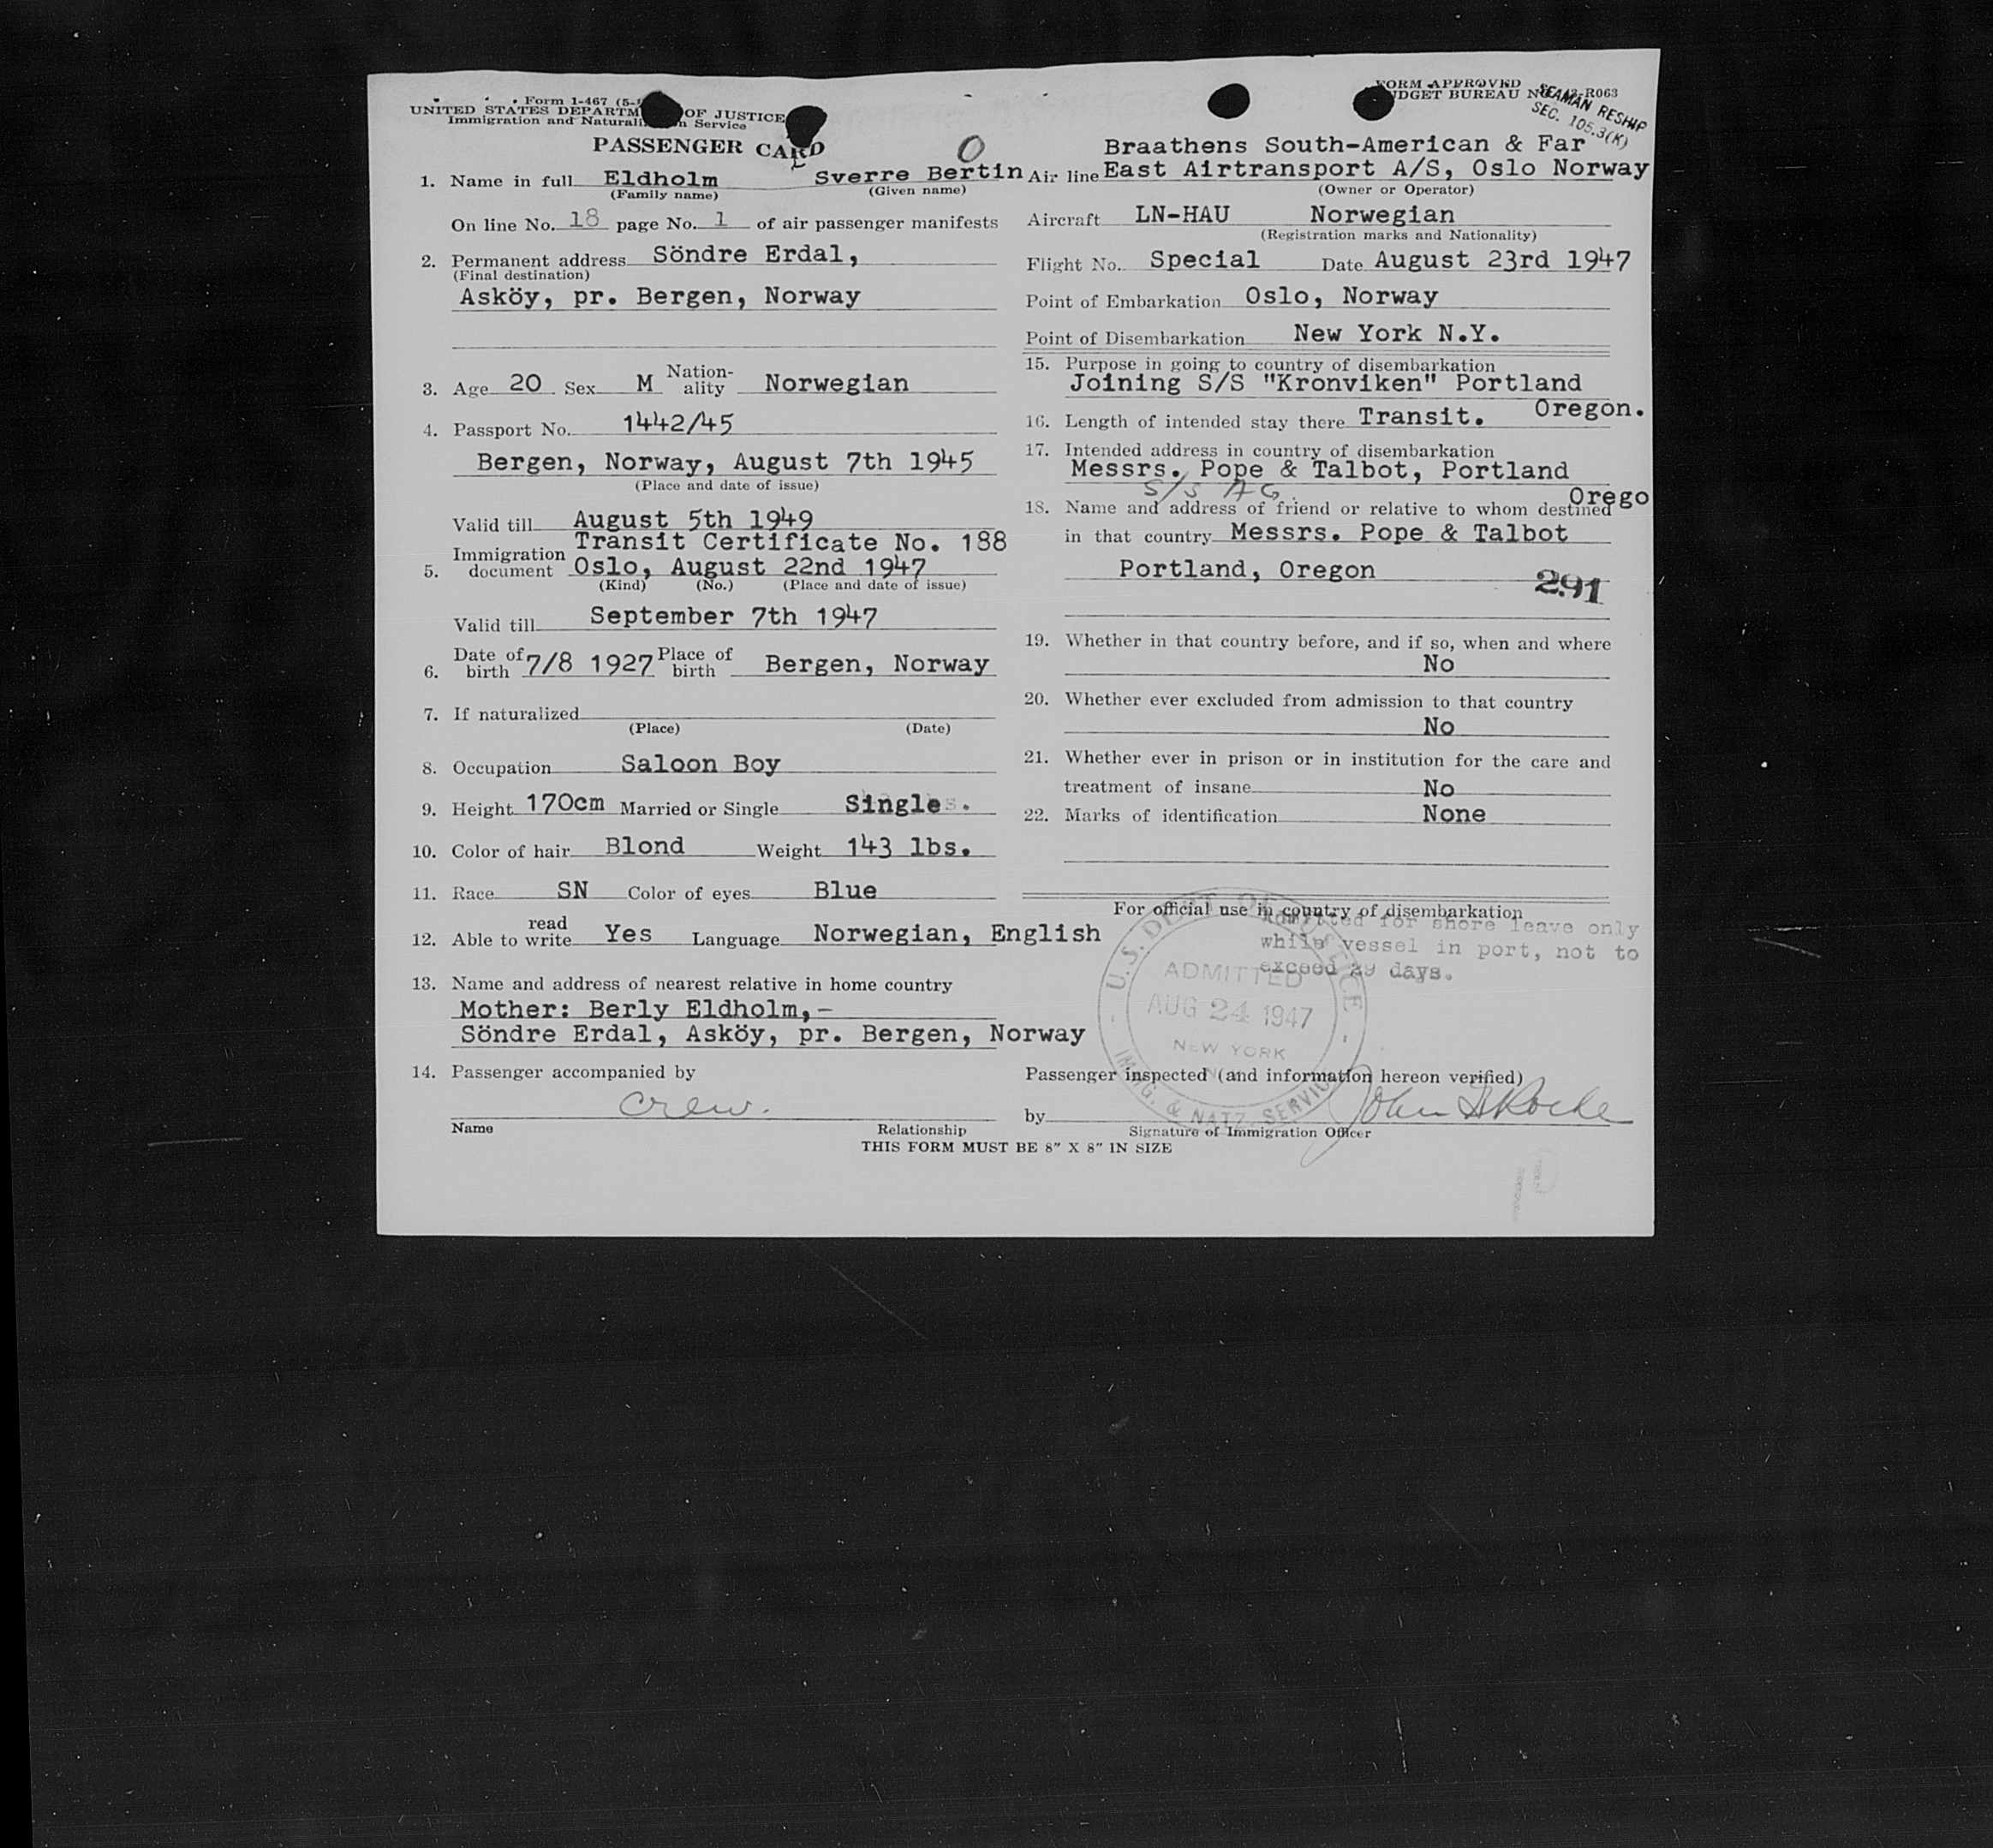 Form 1-467 (5-
UNITED STATES DEPARTM OF JUSTICE
Immigration and Naturali n Service
PASSENGER CARD
0
1. Name in full Eldholm Sverre Bertin
(Family name) (Given name)
On line No. 18 page No. 1 of air passenger manifests
2. Permanent address Söndre Erdal,
(Final destination)
Asköy, pr. Bergen, Norway
3. Age 20 Sex M Nation-ality Norwegian
4. Passport No. 1442/45
Bergen, Norway, August 7th 1945
(Place and date of issue)
Valid till August 5th 1949
Transit Certificate No. 188
5. Immigration document Oslo, August 22nd 1947
(Kind) (No.) (Place and date of issue)
Valid till September 7th 1947
6. Date of birth 7/8 1927 Place of birth Bergen, Norway
7. If naturalized
(Place) (Date)
8. Occupation Saloon Boy
9. Height 170cm Married or Single Single.
10. Color of hair Blond Weight 143 lbs.
11. Race SN Color of eyes Blue
12. Able to read write Yes Language Norwegian, English
13. Name and address of nearest relative in home country
Mother: Berly Eldholm,-
Söndre Erdal, Asköy, pr. Bergen, Norway
14. Passenger accompanied by
crew.
Name Relationship
THIS FORM MUST BE 8" X 8" IN SIZE
FORM APPROVED
DGET BUREAU N R063
SEAMAN RESHIP
SEC. 105.3(K)
Braathens South-American & Far
Air line East Airtransport A/S, Oslo Norway
(Owner or Operator)
Aircraft LN-HAU Norwegian
(Registration marks and Nationality)
Flight No. Special Date August 23rd 1947
Point of Embarkation Oslo, Norway
Point of Disembarkation New York N.Y.
15. Purpose in going to country of disembarkation
Joining S/S "Kronviken" Portland
Oregon.
16. Length of intended stay there Transit.
17. Intended address in country of disembarkation
Messrs. Pope & Talbot, Portland
S/S AG.
Orego
18. Name and address of friend or relative to whom destined
in that country Messrs. Pope & Talbot
Portland, Oregon
291
19. Whether in that country before, and if so, when and where
No
20. Whether ever excluded from admission to that country
No
21. Whether ever in prison or in institution for the care and
treatment of insane No
22. Marks of identification None
For official use in country of disembarkation
Admitted for shore leave only
while vessel in port, not to
exceed 29 days.
U.S. DEPT. OF JUSTICE
ADMITTED
AUG 24 1947
NEW YORK
IMMIG. & NATZ. SERVICE
Passenger inspected (and information hereon verified)
by John
Signature of Immigration Officer